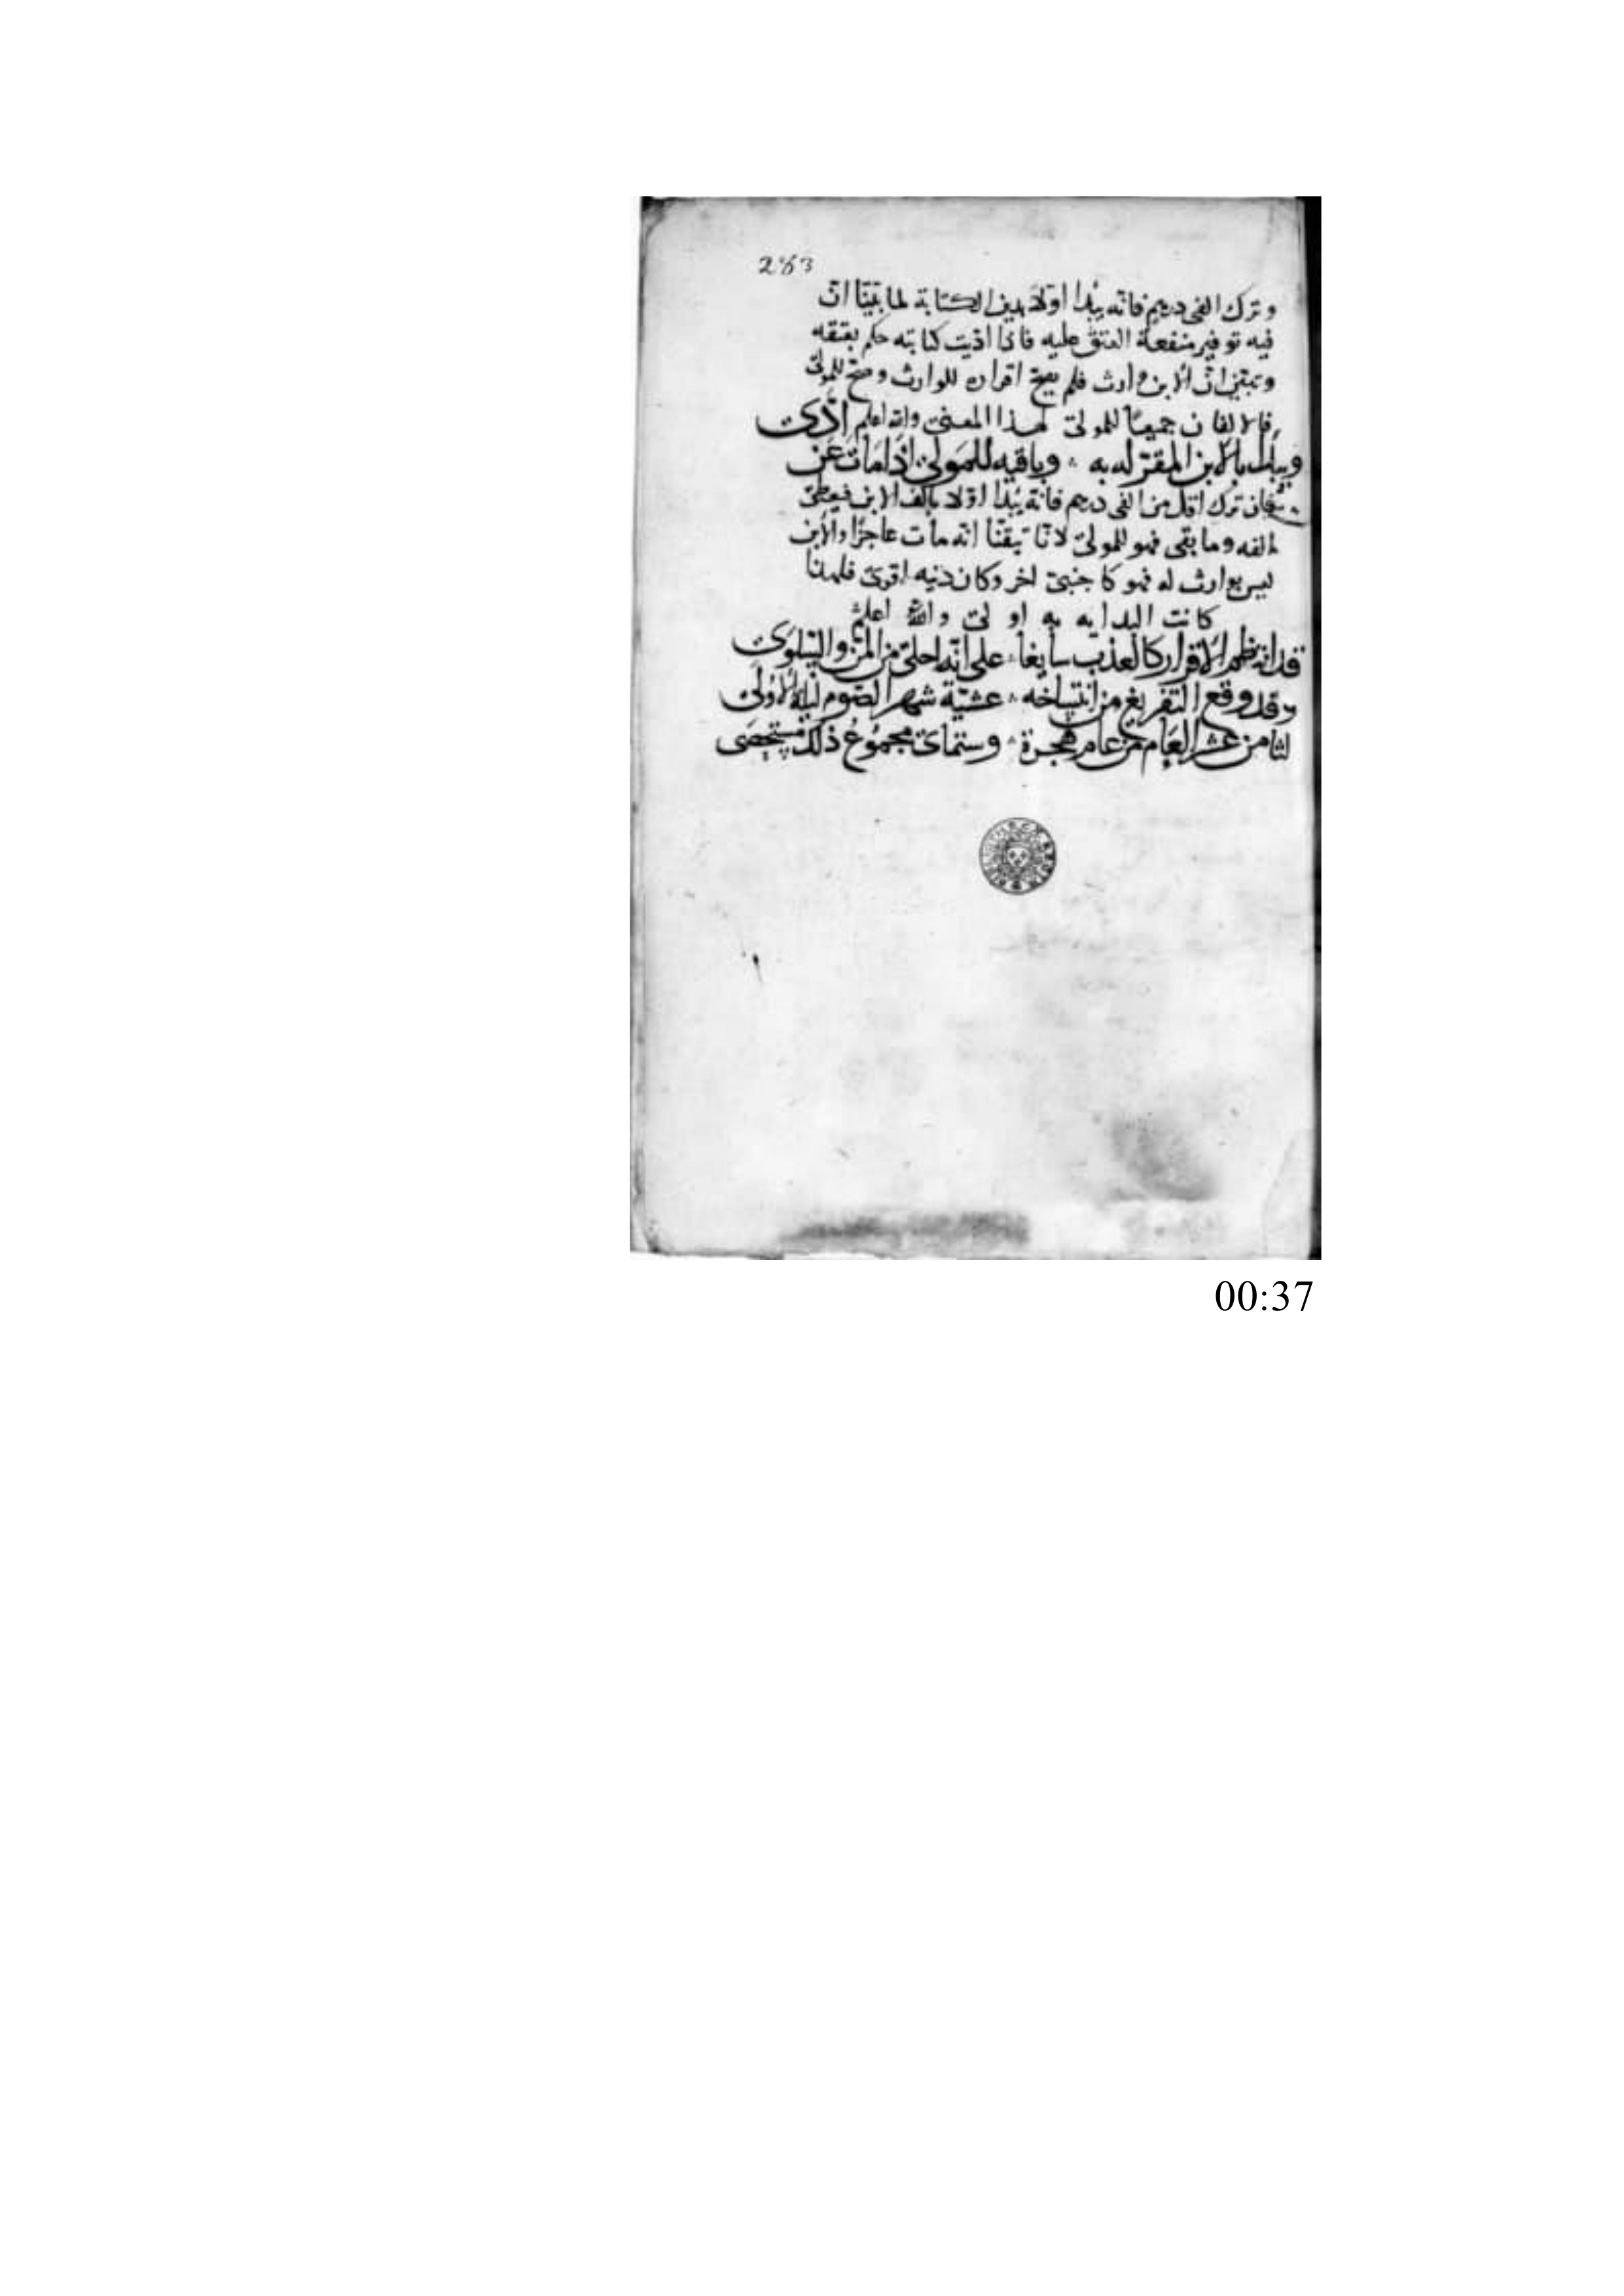 283
وترك الفى درهم فانه يبدا اولا بدين الكتابة لما بيّنا انّ
فيه توفير منفعة العتق عليه فاذا اديت كتابته حكم بعتقه
وتبيّن انّ الابن وارث فلم يصح اقراره للوارث وصحّ للمولىّ
فالالفان جميعًا للمولىّ لهذا المعنىّ والله اعلم ادّىّ
ويبدا بالابن المقرّ له به وباقيه للمولىّ اذا مات عن
فان ترك اقل من الفى درهم فانه يبدا اولا بالف الابن فيعطىّ
الفه وما بقى فهو للمولىّ لانّا تيقنّا انّه مات عاجزًا والابن
ليس بوارث له فهو كاجنبىّ اخر وكان دينه اقوىّ فلهذا
كانت البدايه به اولىّ والله اعلم
قد انتظم الاقرار كالعذب سايغا على انّه احلىّ من المنّ والسّلوىّ
وقد وقع التفريغ من انتساخه عشيّة شهر الصّوم ليلة الاولىّ
لثامن عشر العام من عام هجرة وستماىّة مجموع ذلك
00:37